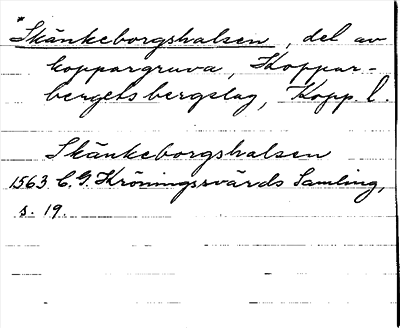 *Skänkeborgshalsen, del av
koppargruva, Koppar-
bergets bergslag, Kopp. l.
Skänkeborgshalsen
1563 C. G. Kröningssvärds Samling,
s. 19.